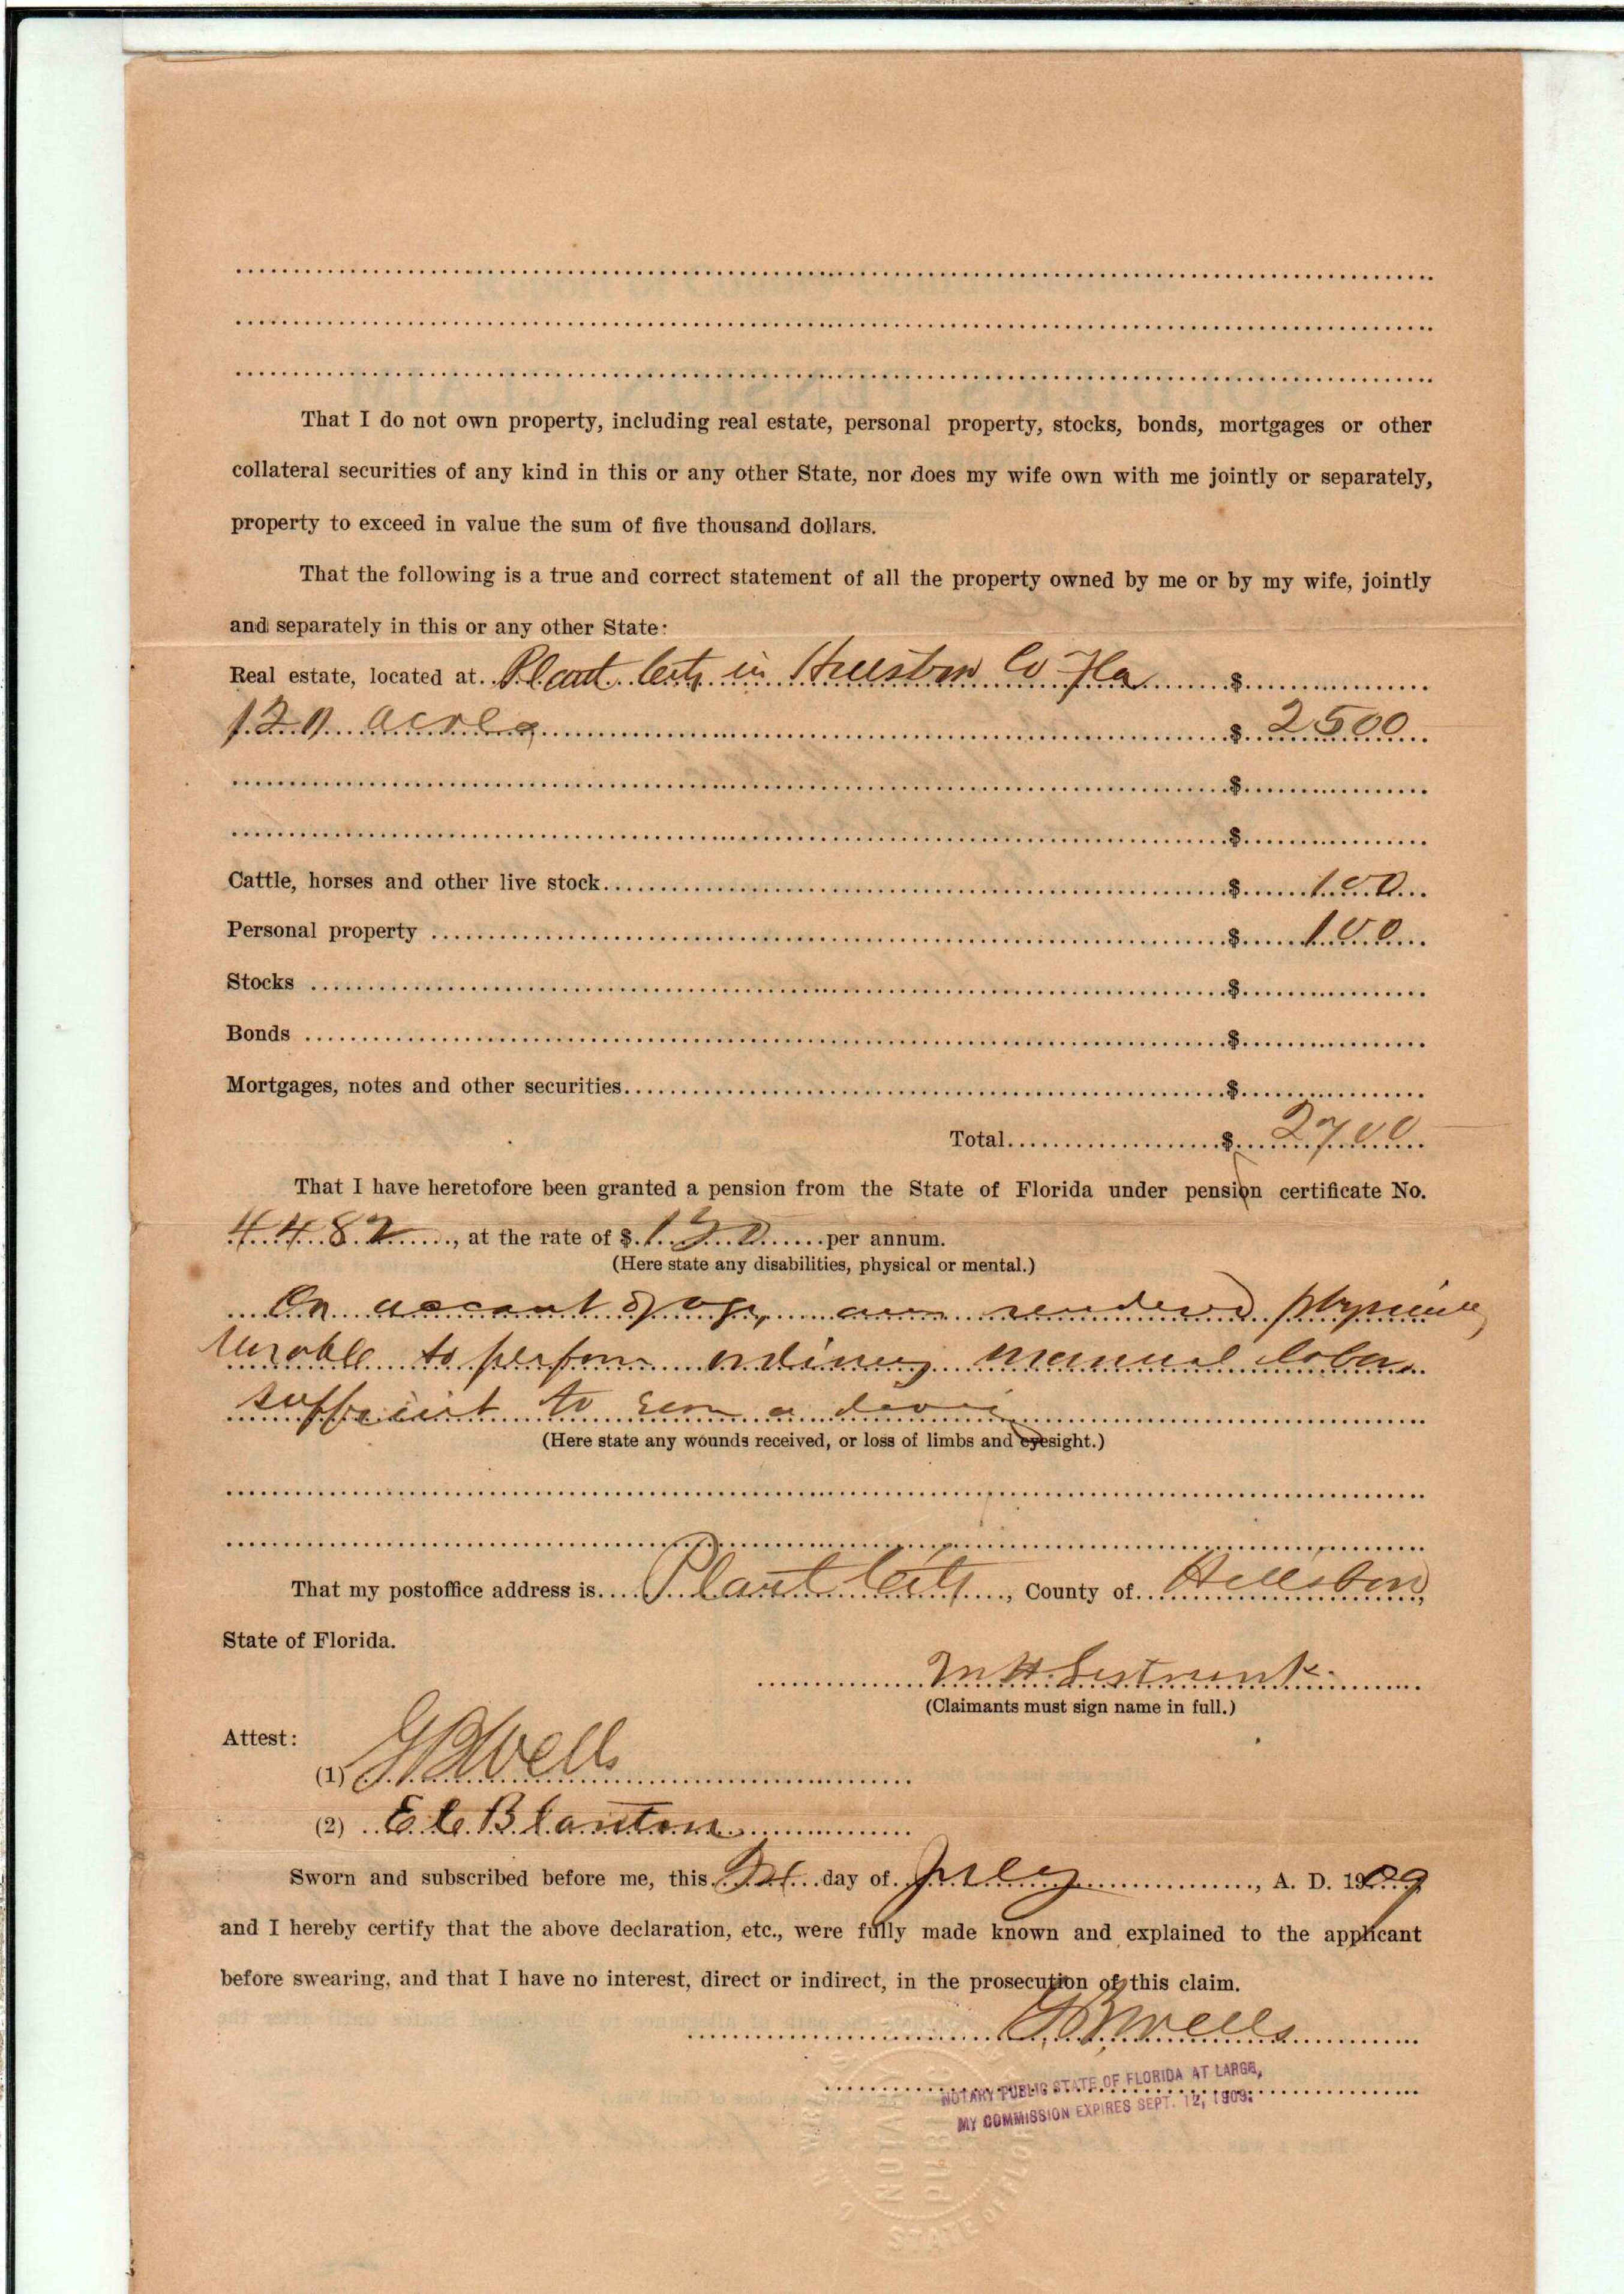 That I do not own property, including real estate, personal property, stocks, bonds, mortgages or other
collateral securities of any kind in this or any other State, nor does my wife own with me jointly or separately,
property to exceed in value the sum of five thousand dollars.
That the following is a true and correct statement of all the property owned by me or by my wife, jointly
and separately in this or any other State:
Real estate, located at Plant City in Hillsboro Co Fla $
120 acres $ 2500
$
$
Cattle, horses and other live stock $ 100
Personal property $ 100
Stocks $
Bonds $
Mortgages, notes and other securities $
Total $ 2700
That I have heretofore been granted a pension from the State of Florida under pension certificate No.
4482, at the rate of $ 120 per annum.
(Here state any disabilities, physical or mental.)
On account of age, am rendered
unable to perform ordinary manual labor
sufficient to
(Here state any wounds received, or loss of limbs and eyesight.)
That my postoffice address is Plant City, County of Hillsboro,
State of Florida.
M H Sistrunk
(Claimants must sign name in full.)
Attest:
(1) G B Wells
(2) E C Blanton
Sworn and subscribed before me, this day of July, A. D. 1909
and I hereby certify that the above declaration, etc., were fully made known and explained to the applicant
before swearing, and that I have no interest, direct or indirect, in the prosecution of this claim.
G B Wells
NOTARY PUBLIC STATE OF FLORIDA AT LARGE,
MY COMMISSION EXPIRES SEPT. 12, 1909.
NOTARY
PUBLIC
STATE OF FLORIDA